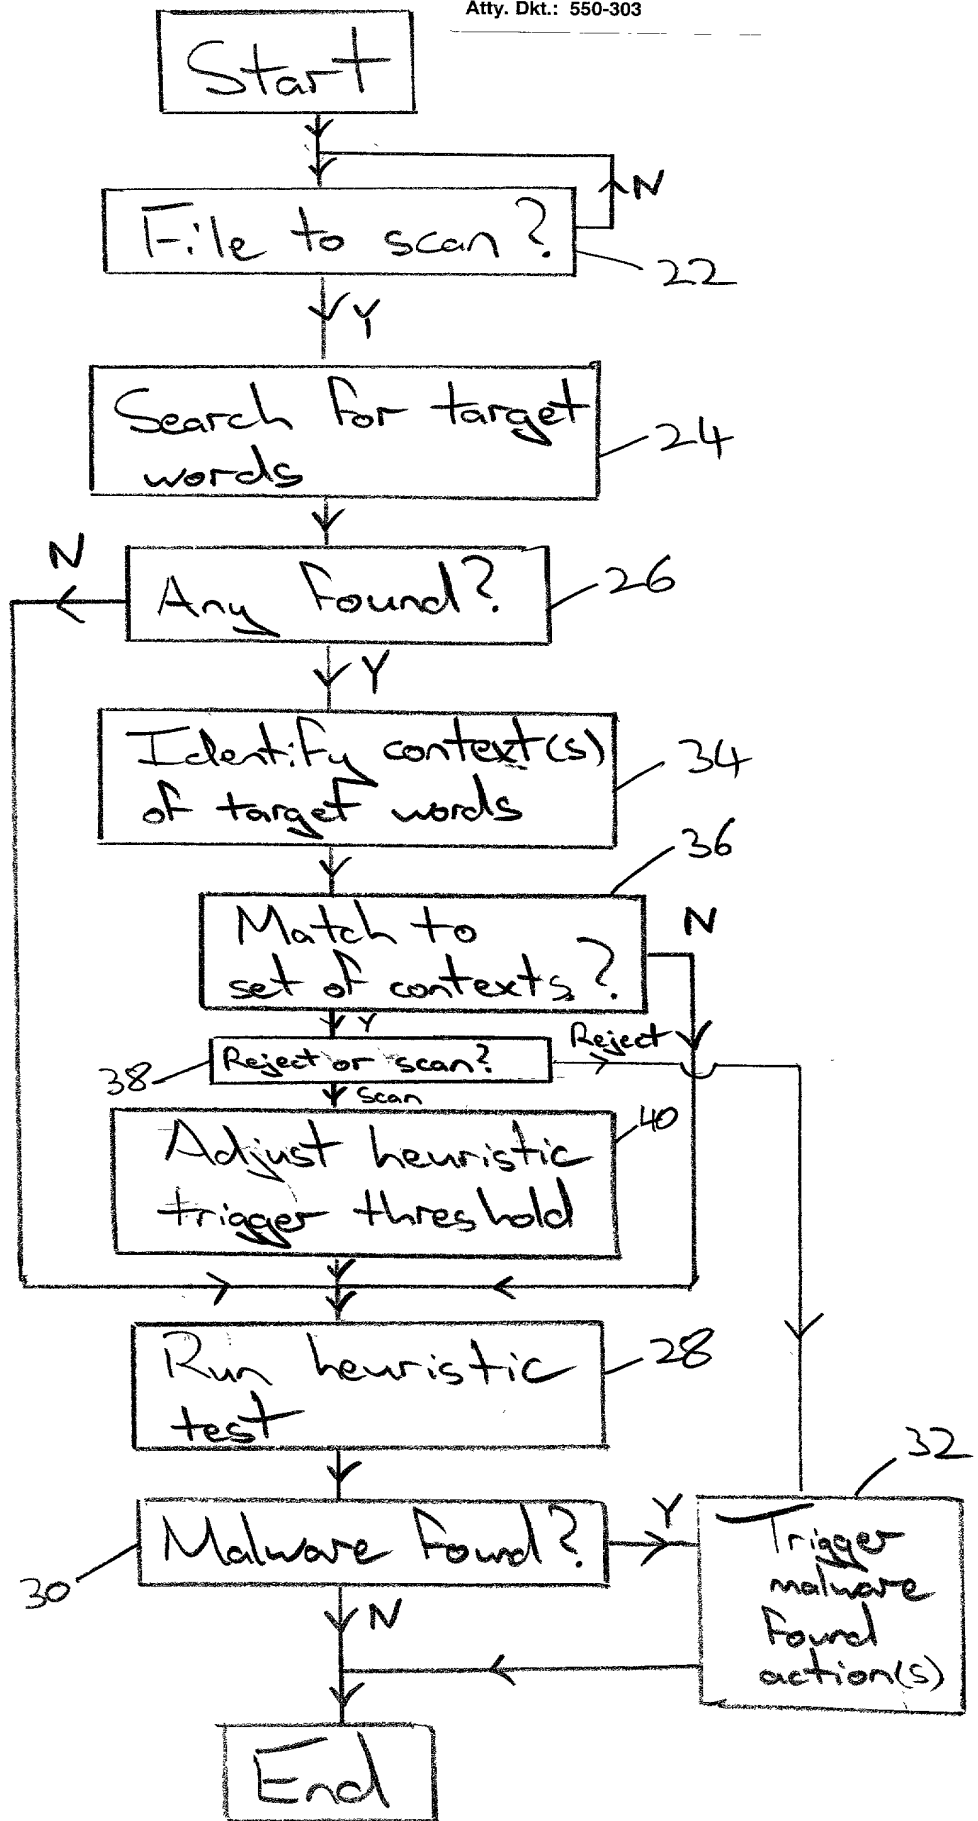 Atty. Dkt.: 550-303
Start
N
File to scan?
22
Y
Search for target
words
24
N
Any found?
26
Y
Identify context(s)
of target words
34
36
Match to
set of contexts?
N
Y
Reject
Reject or scan?
38
scan
40
Adjust heuristic
trigger threshold
Run heuristic
test
28
32
Malware found?
Y
30
N
Trigger
malware
found
action(s)
End